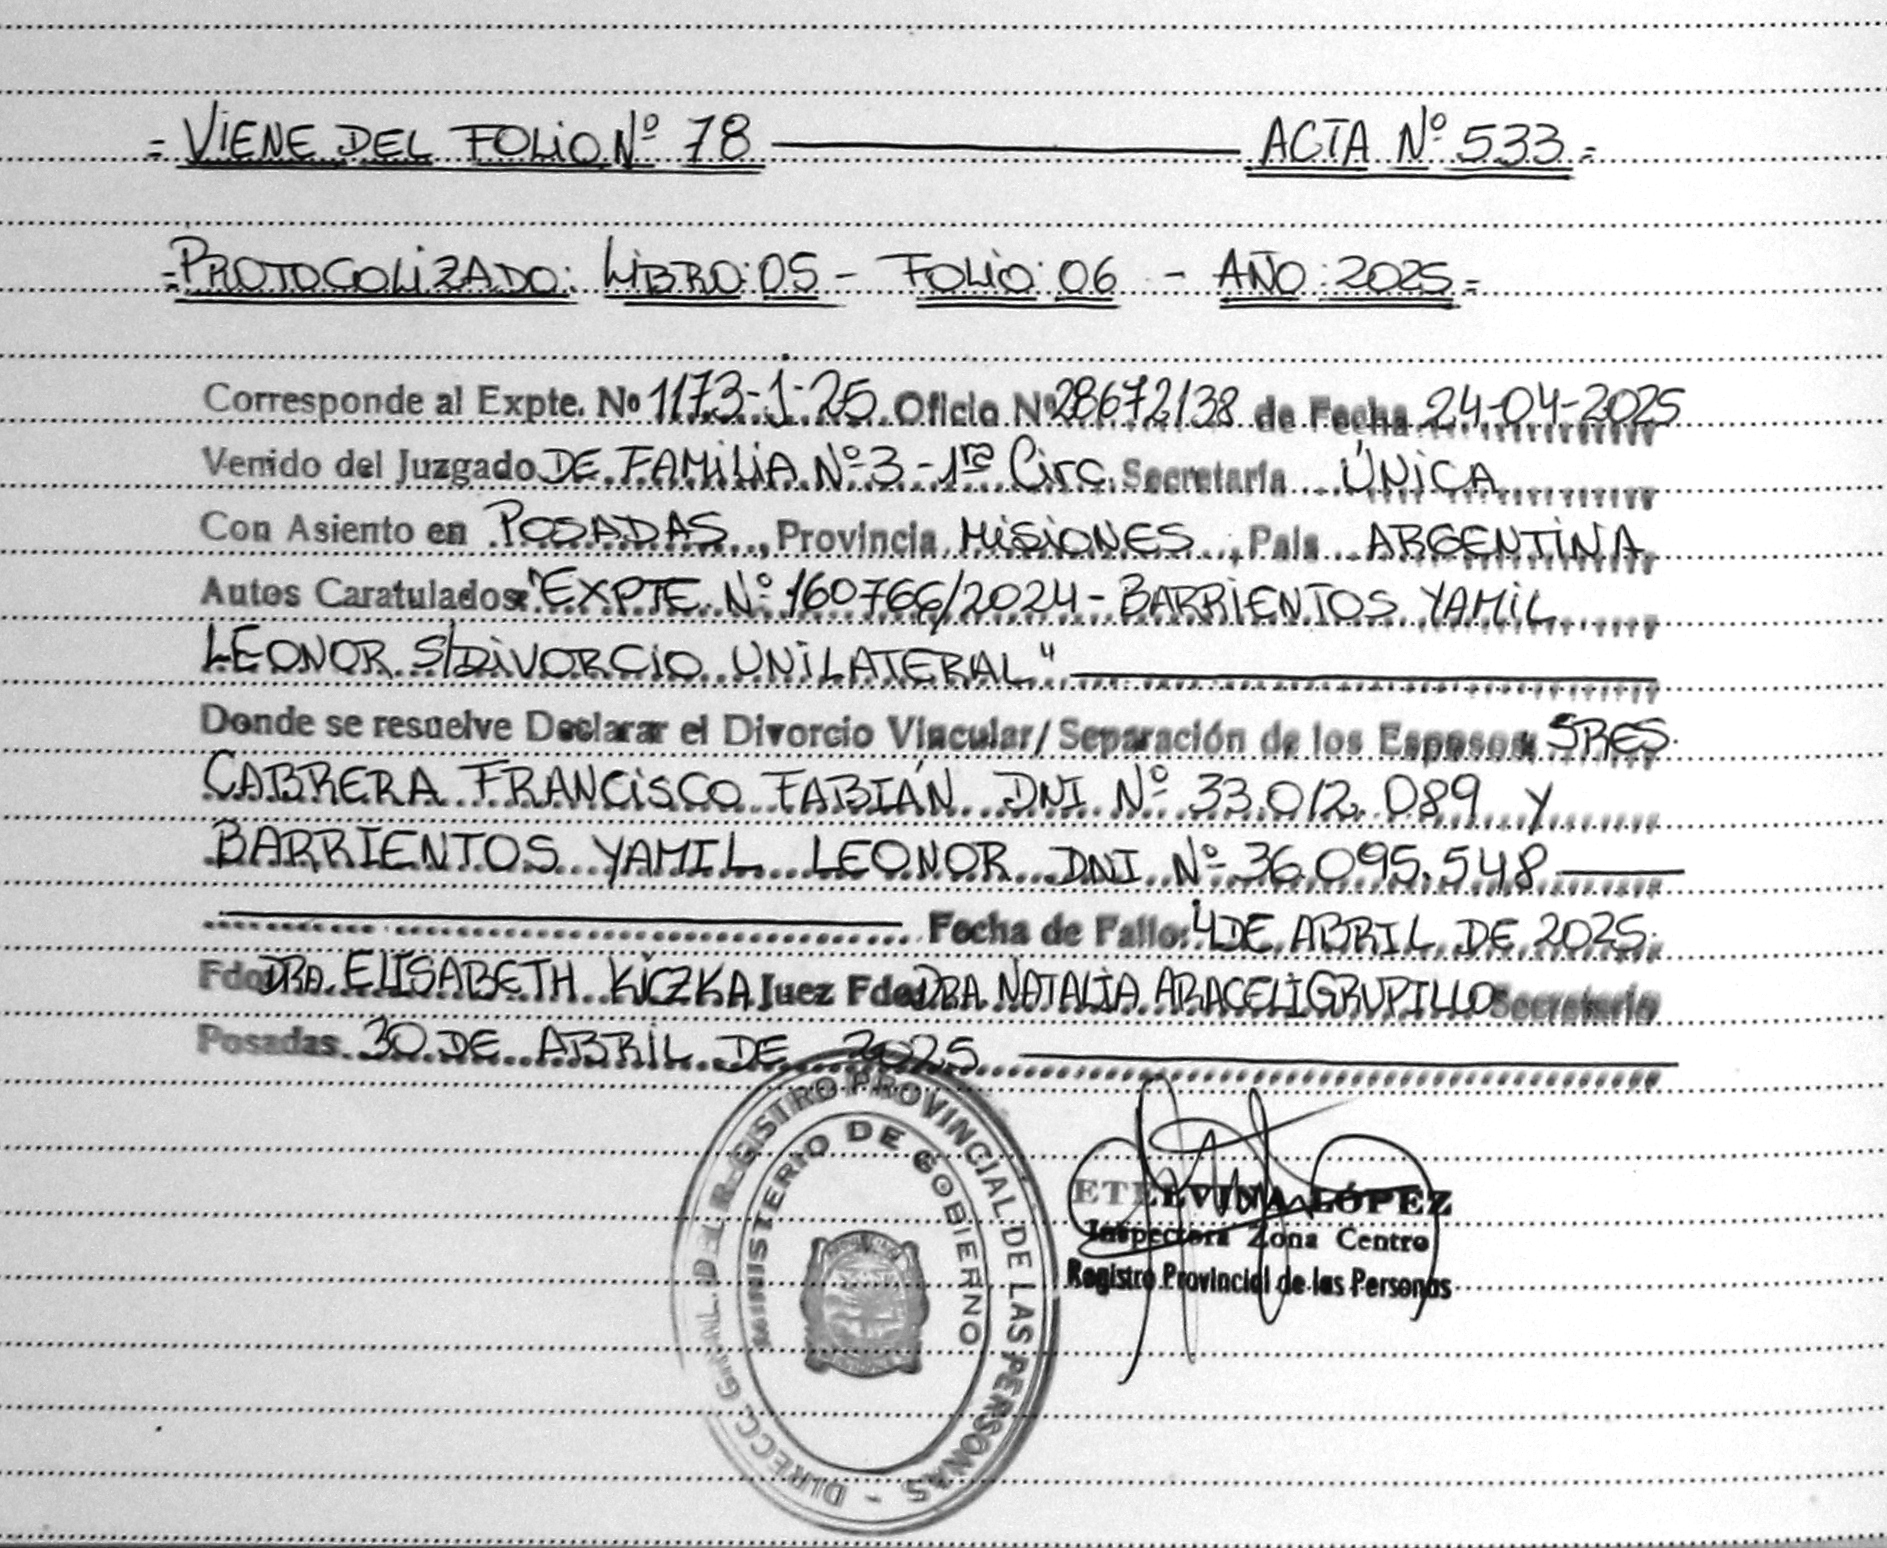 = VIENE DEL FOLIO Nº 78 ——— ACTA Nº 533 =
= PROTOCOLIZADO: LIBRO: 05 - FOLIO: 06 - AÑO: 2025 =
Corresponde al Expte. Nº 1173-J-25 Oficio Nº 28672138 de Fecha 24-04-2025
Venido del Juzgado DE FAMILIA Nº 3 - 1ra Circ. Secretaría ÚNICA
Con Asiento en POSADAS, Provincia MISIONES, País ARGENTINA
Autos Caratulados: "EXPTE. Nº 160766/2024 - BARRIENTOS YAMIL
LEONOR S/DIVORCIO UNILATERAL"
Donde se resuelve Declarar el Divorcio Vincular/Separación de los Esposos SRES.
CABRERA FRANCISCO FABIÁN DNI Nº 33.012.089 Y
BARRIENTOS YAMIL LEONOR DNI Nº 36.095.548
Fecha de Fallo: 4 DE ABRIL DE 2025.
Fdo DRA. ELISABETH KICZKA Juez Fdo DRA NATALIA ARACELI GRUPILLO Secretario
Posadas 30 DE ABRIL DE 2025
DIRECC. GRAL. DEL REGISTRO PROVINCIAL DE LAS PERSONAS -
MINISTERIO DE GOBIERNO
ETELVINA LÓPEZ
Inspectora Zona Centro
Registro Provincial de las Personas